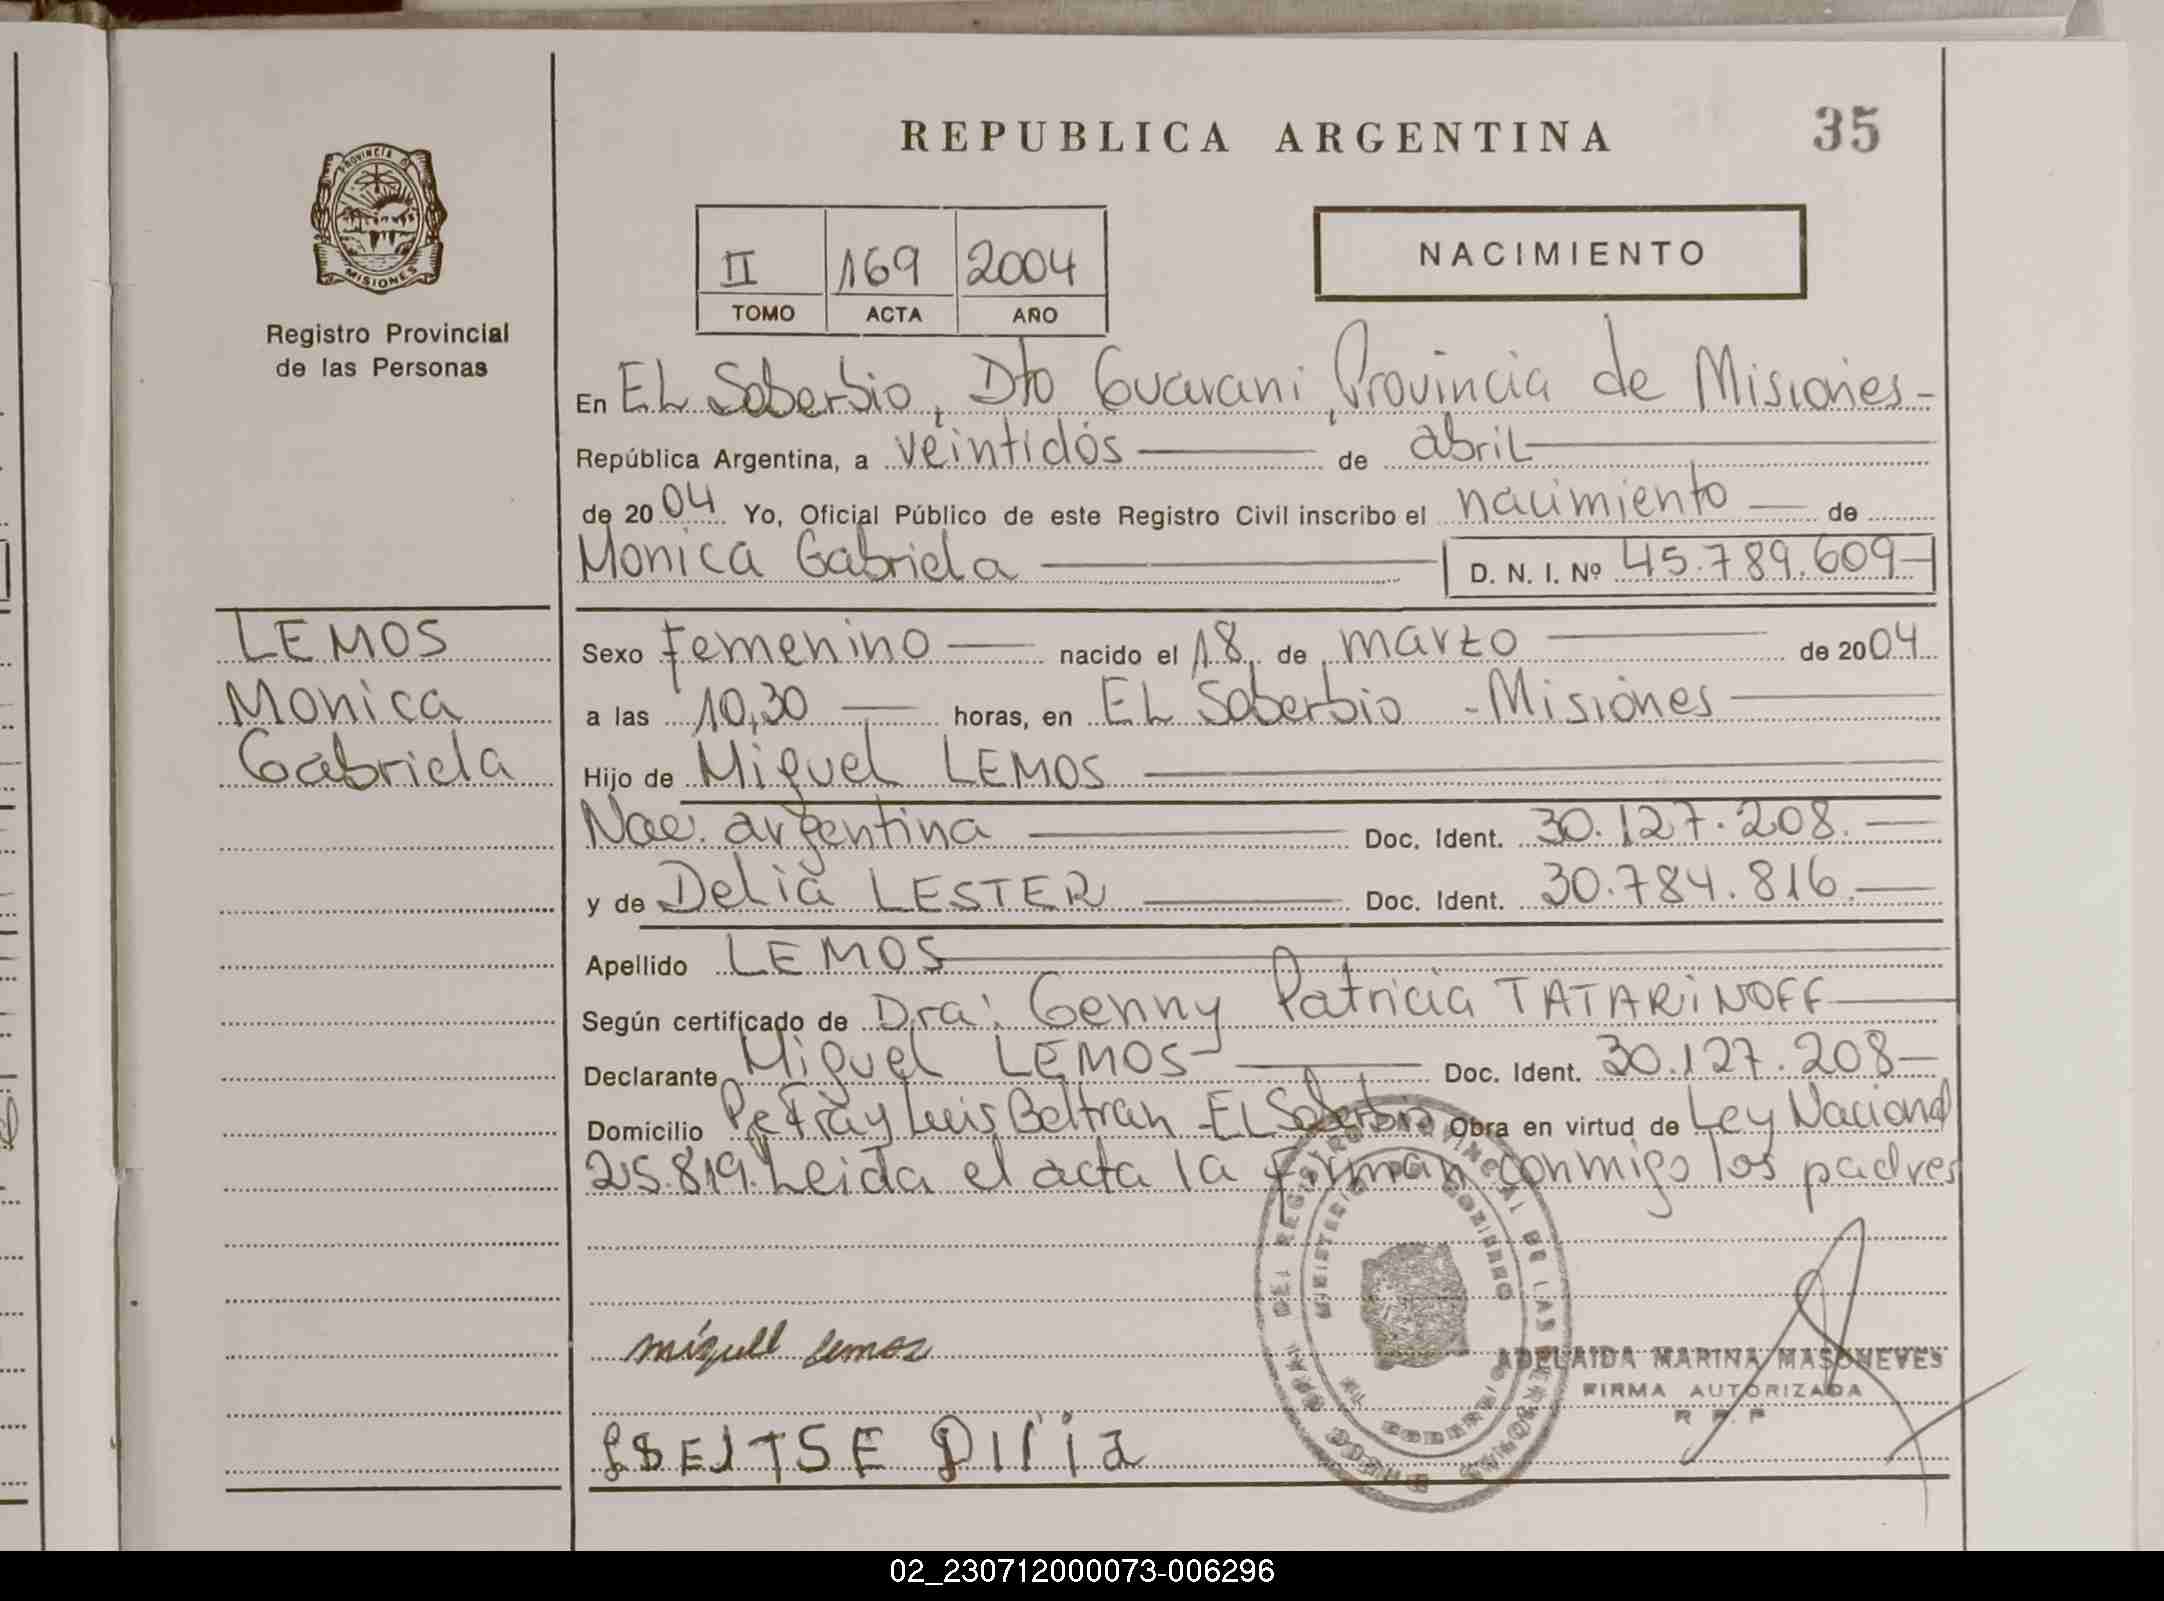 REPUBLICA ARGENTINA
35
PROVINCIA D
MISIONES
Registro Provincial
de las Personas
II 169 2004
TOMO ACTA AÑO
NACIMIENTO
En EL Soberbio, Dto Guarani, Provincia de Misiones-
República Argentina, a veintidós de abril
de 2004 Yo, Oficial Público de este Registro Civil inscribo el nacimiento de
Monica Gabriela D. N. I. Nº 45.789.609-
LEMOS
Monica
Gabriela
Sexo femenino nacido el 18 de marzo de 2004
a las 10,30 horas, en EL Soberbio - Misiones
Hijo de Miguel LEMOS
Nac. argentina Doc. Ident. 30.127.208.
y de Delia LESTER Doc. Ident. 30.784.816
Apellido LEMOS
Según certificado de Dra: Genny Patricia TATARiNOFF
Declarante Miguel LEMOS Doc. Ident. 30.127.208
Domicilio Fray Luis Beltran - EL Soberbio Obra en virtud de Ley Nacional
25.819. Leida el acta la firman conmigo los padres
miguell lemos
ADELAIDA MARINA MASONEVES
FIRMA AUTORIZADA
R P P
Dilia
02_230712000073-006296